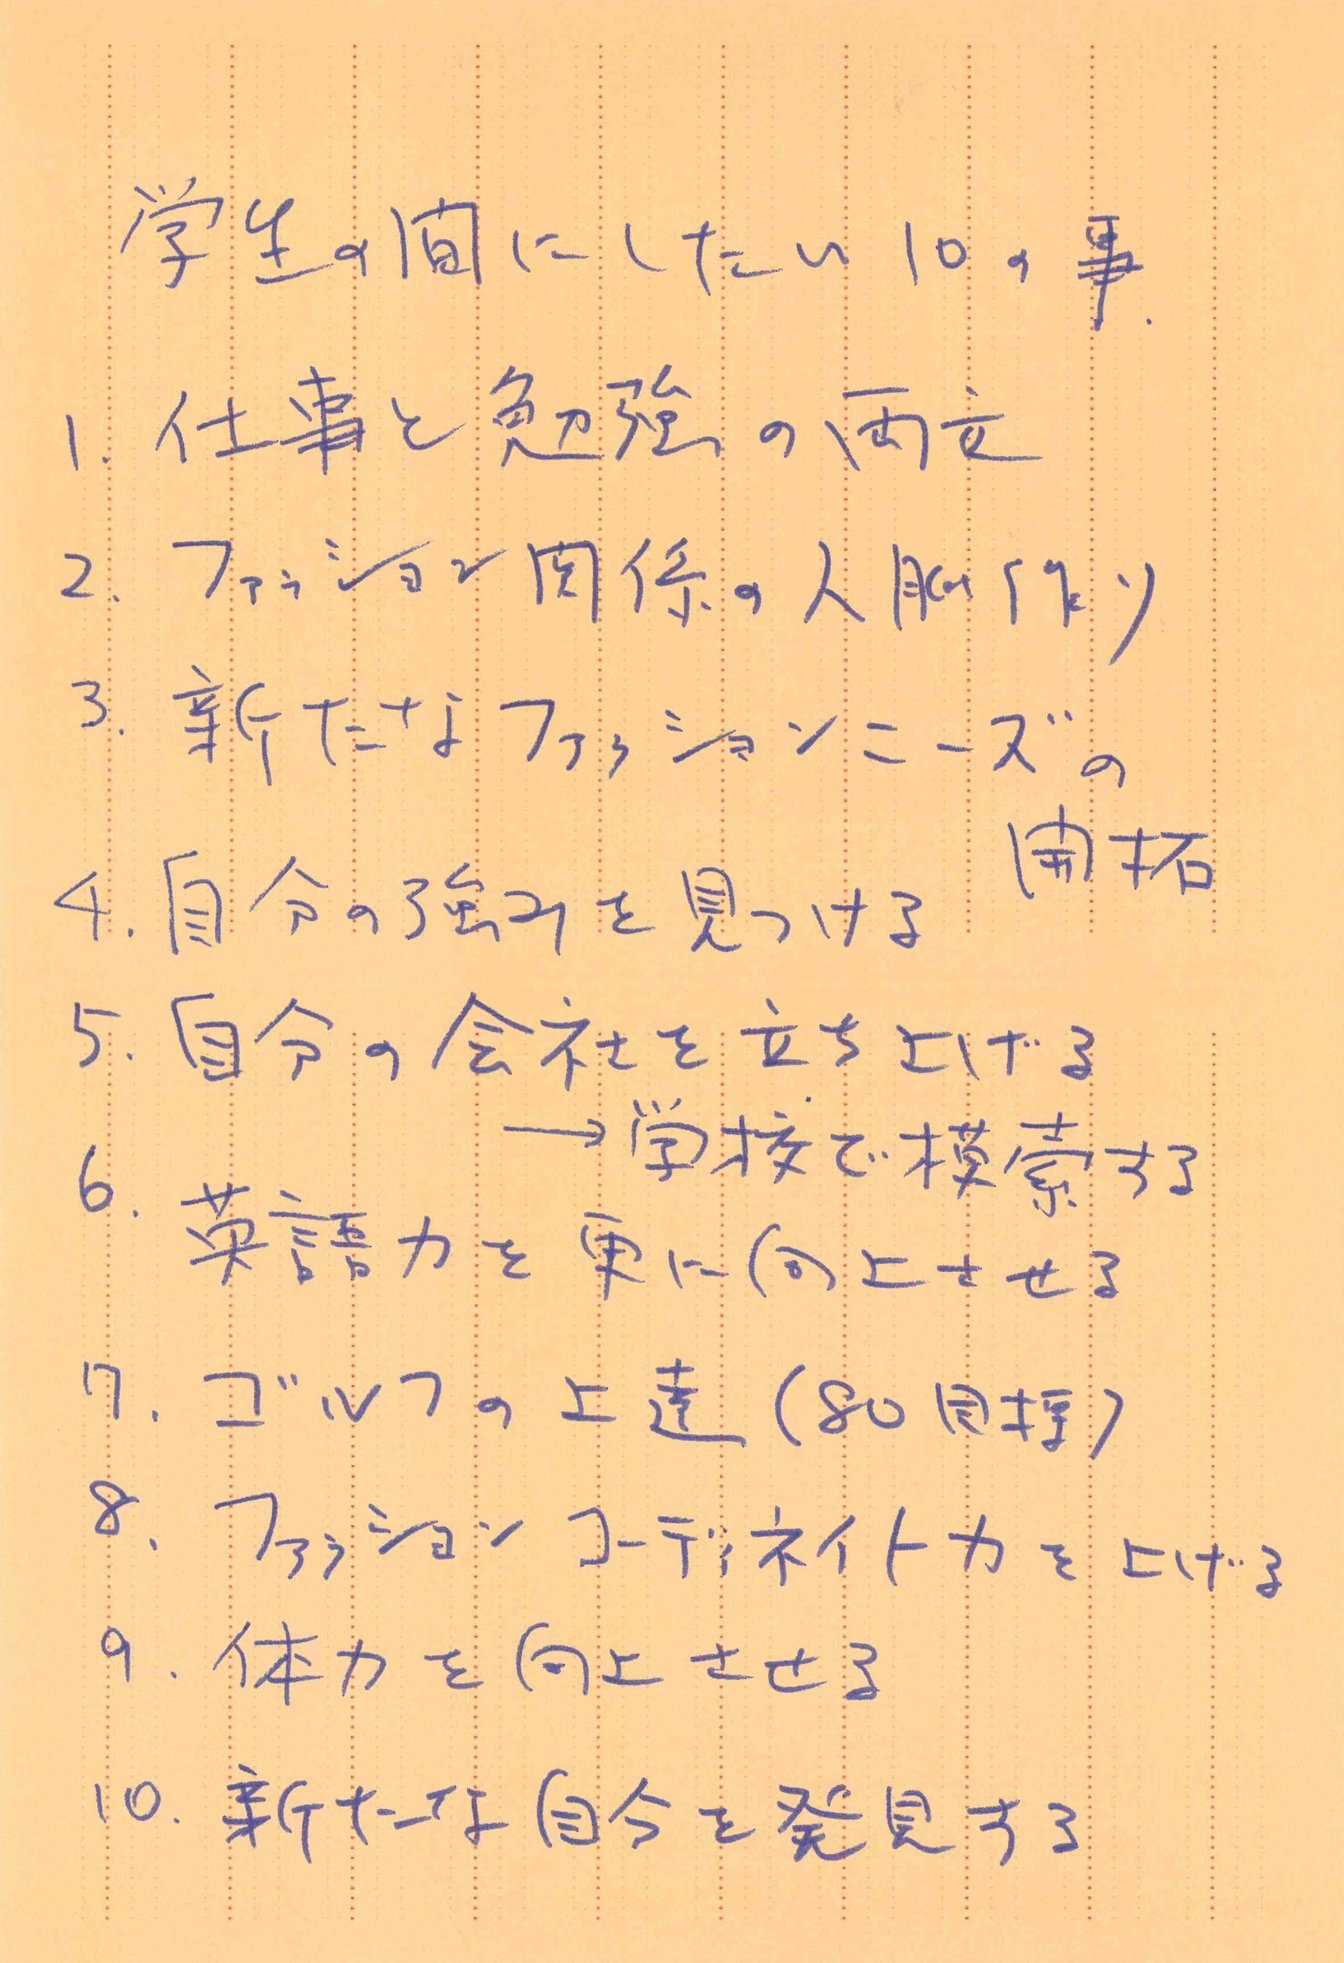 学生の間にしたい10の事.
1. 仕事と勉強の両立
2. ファッション関係の人脈作り
3. 新たなファッションニーズの
開拓
4. 自分の強みを見つける
5. 自分の会社を立ち上げる
→学校で模索する
6. 英語力を更に向上させる
7. ゴルフの上達(80目標)
8. ファッションコーディネイト力を上げる
9. 体力を向上させる
10. 新たな自分を発見する